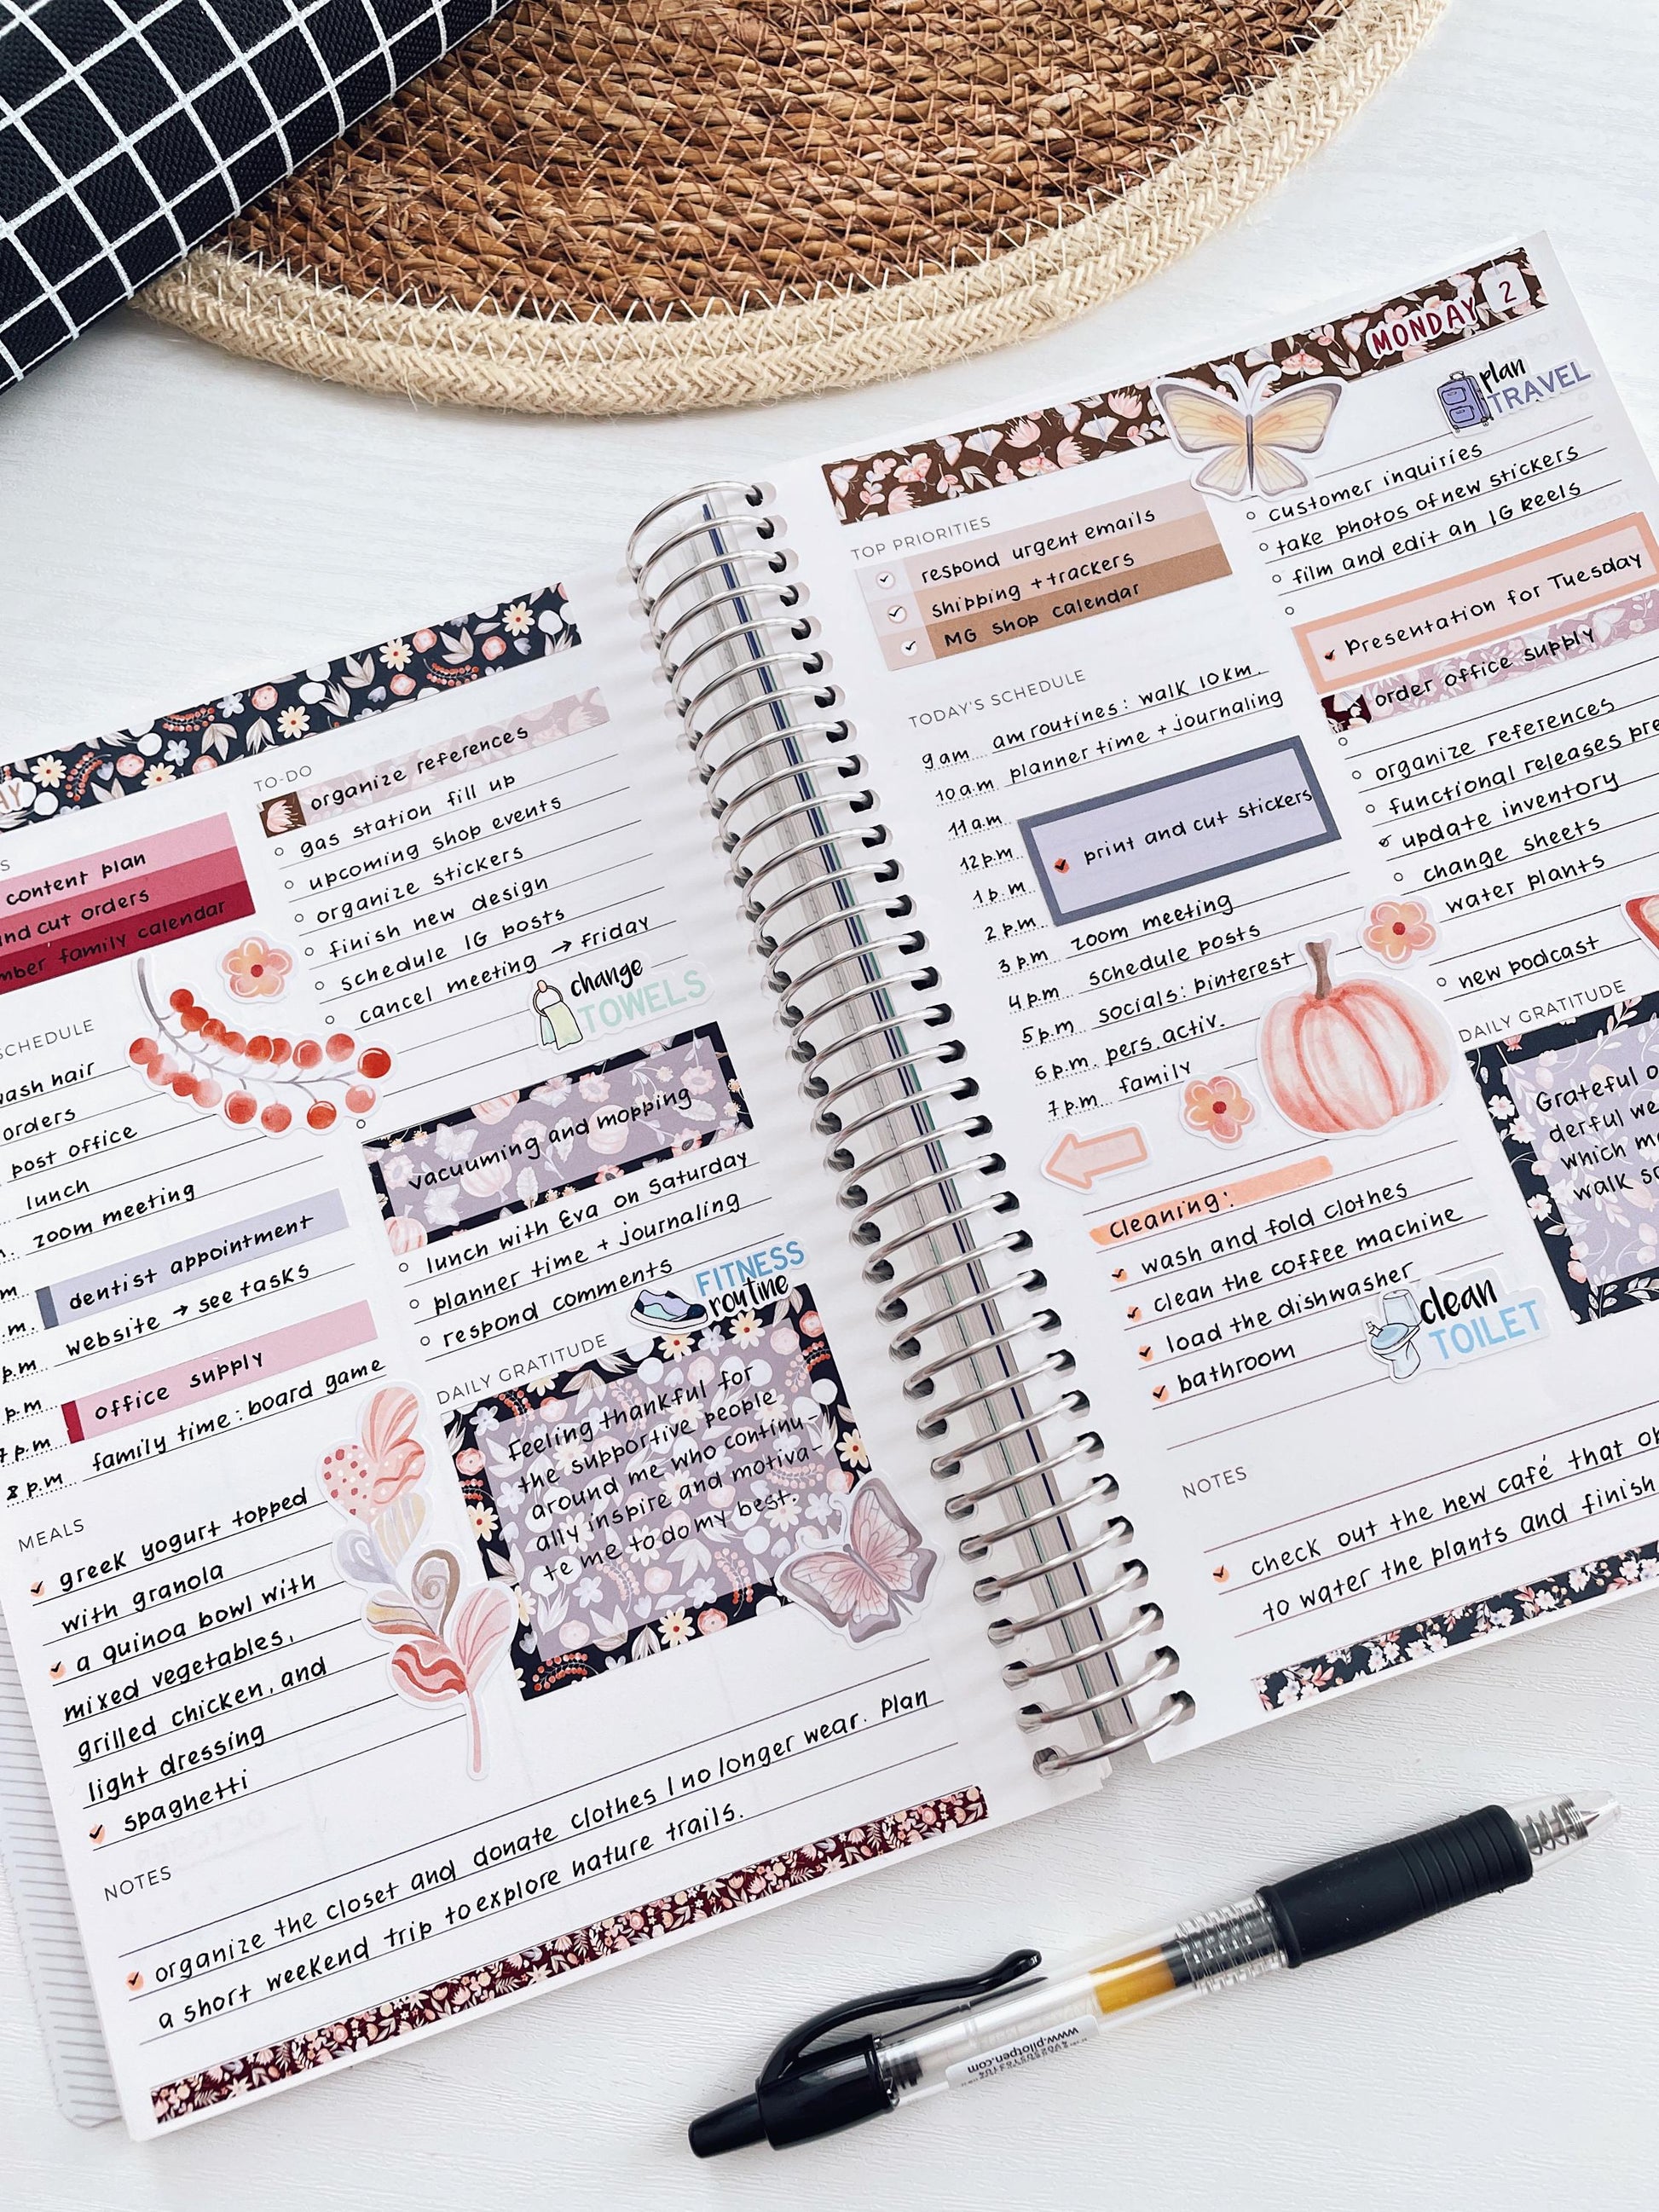 TO-DO
organize references
gas station fill up
upcoming shop events
organize stickers
finish new design
schedule IG posts
cancel meeting → Friday
change
TOWELS
vacuuming and mopping
lunch with Eva on Saturday
planner time + journaling
respond comments
FITNESS
routine
DAILY GRATITUDE
Feeling thankful for
the supportive people
around me who continu-
ally inspire and motiva-
te me to do my best.
content plan
cut orders
family calendar
SCHEDULE
hair
orders
post office
lunch
zoom meeting
dentist appointment
website → see tasks
office supply
family time: board game
8 p.m.
MEALS
greek yogurt topped
with granola
a quinoa bowl with
mixed vegetables,
grilled chicken, and
light dressing
spaghetti
NOTES
organize the closet and donate clothes I no longer wear. Plan
a short weekend trip to explore nature trails.
MONDAY 2
TOP PRIORITIES
respond urgent emails
shipping + trackers
MG shop calendar
TODAY'S SCHEDULE
9 am am routines: walk 10 km.
10 a.m. planner time + journaling
11 a.m.
12 p.m.
print and cut stickers
1 p.m.
2 p.m. zoom meeting
3 p.m. schedule posts
4 p.m socials: pinterest
5 p.m pers. activ.
6 p.m. family
7 p.m.
Cleaning:
wash and fold clothes
clean the coffee machine
load the dishwasher
bathroom
clean
TOILET
plan
TRAVEL
customer inquiries
take photos of new stickers
film and edit an IG Reels
Presentation for Tuesday
order office supply
organize references
functional releases
update inventory
change sheets
water plants
new podcast
DAILY GRATITUDE
Grateful
derful
which
walk
NOTES
check out the new café that
to water the plants and finish
www.pilotpen.com